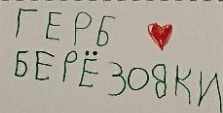 ГЕРБ
БЕРЁЗОВКИ